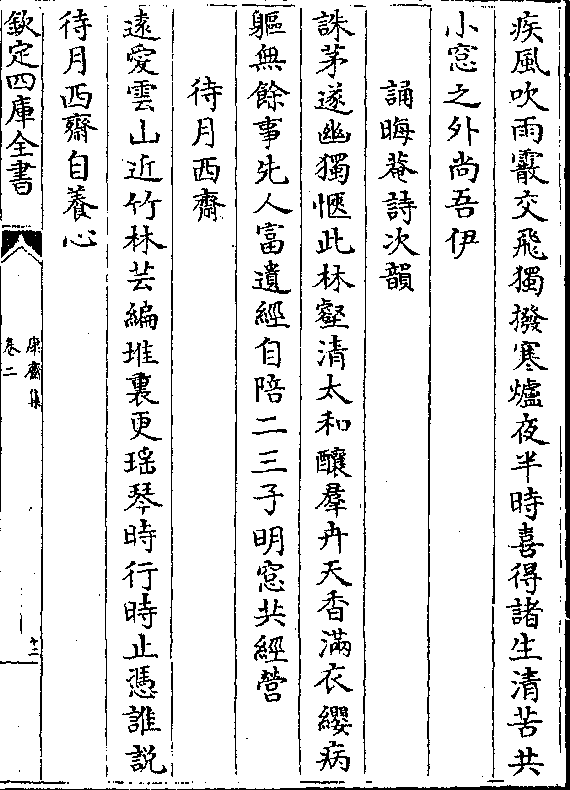 疾風吹雨霰交飛獨撥寒爐夜半時喜得諸生清苦共
小窓之外尚吾伊
誦晦菴詩次韻
誅茅遂幽獨愜此林壑清太和釀羣卉天香滿衣纓病
軀無餘事先人富遺經自陪二三子明窓共經營
待月西齋
遠愛雲山近竹林芸編堆裏更瑶琴時行時止憑誰説
待月西齋自養心
欽定四庫全書
康齋集
卷二
十二